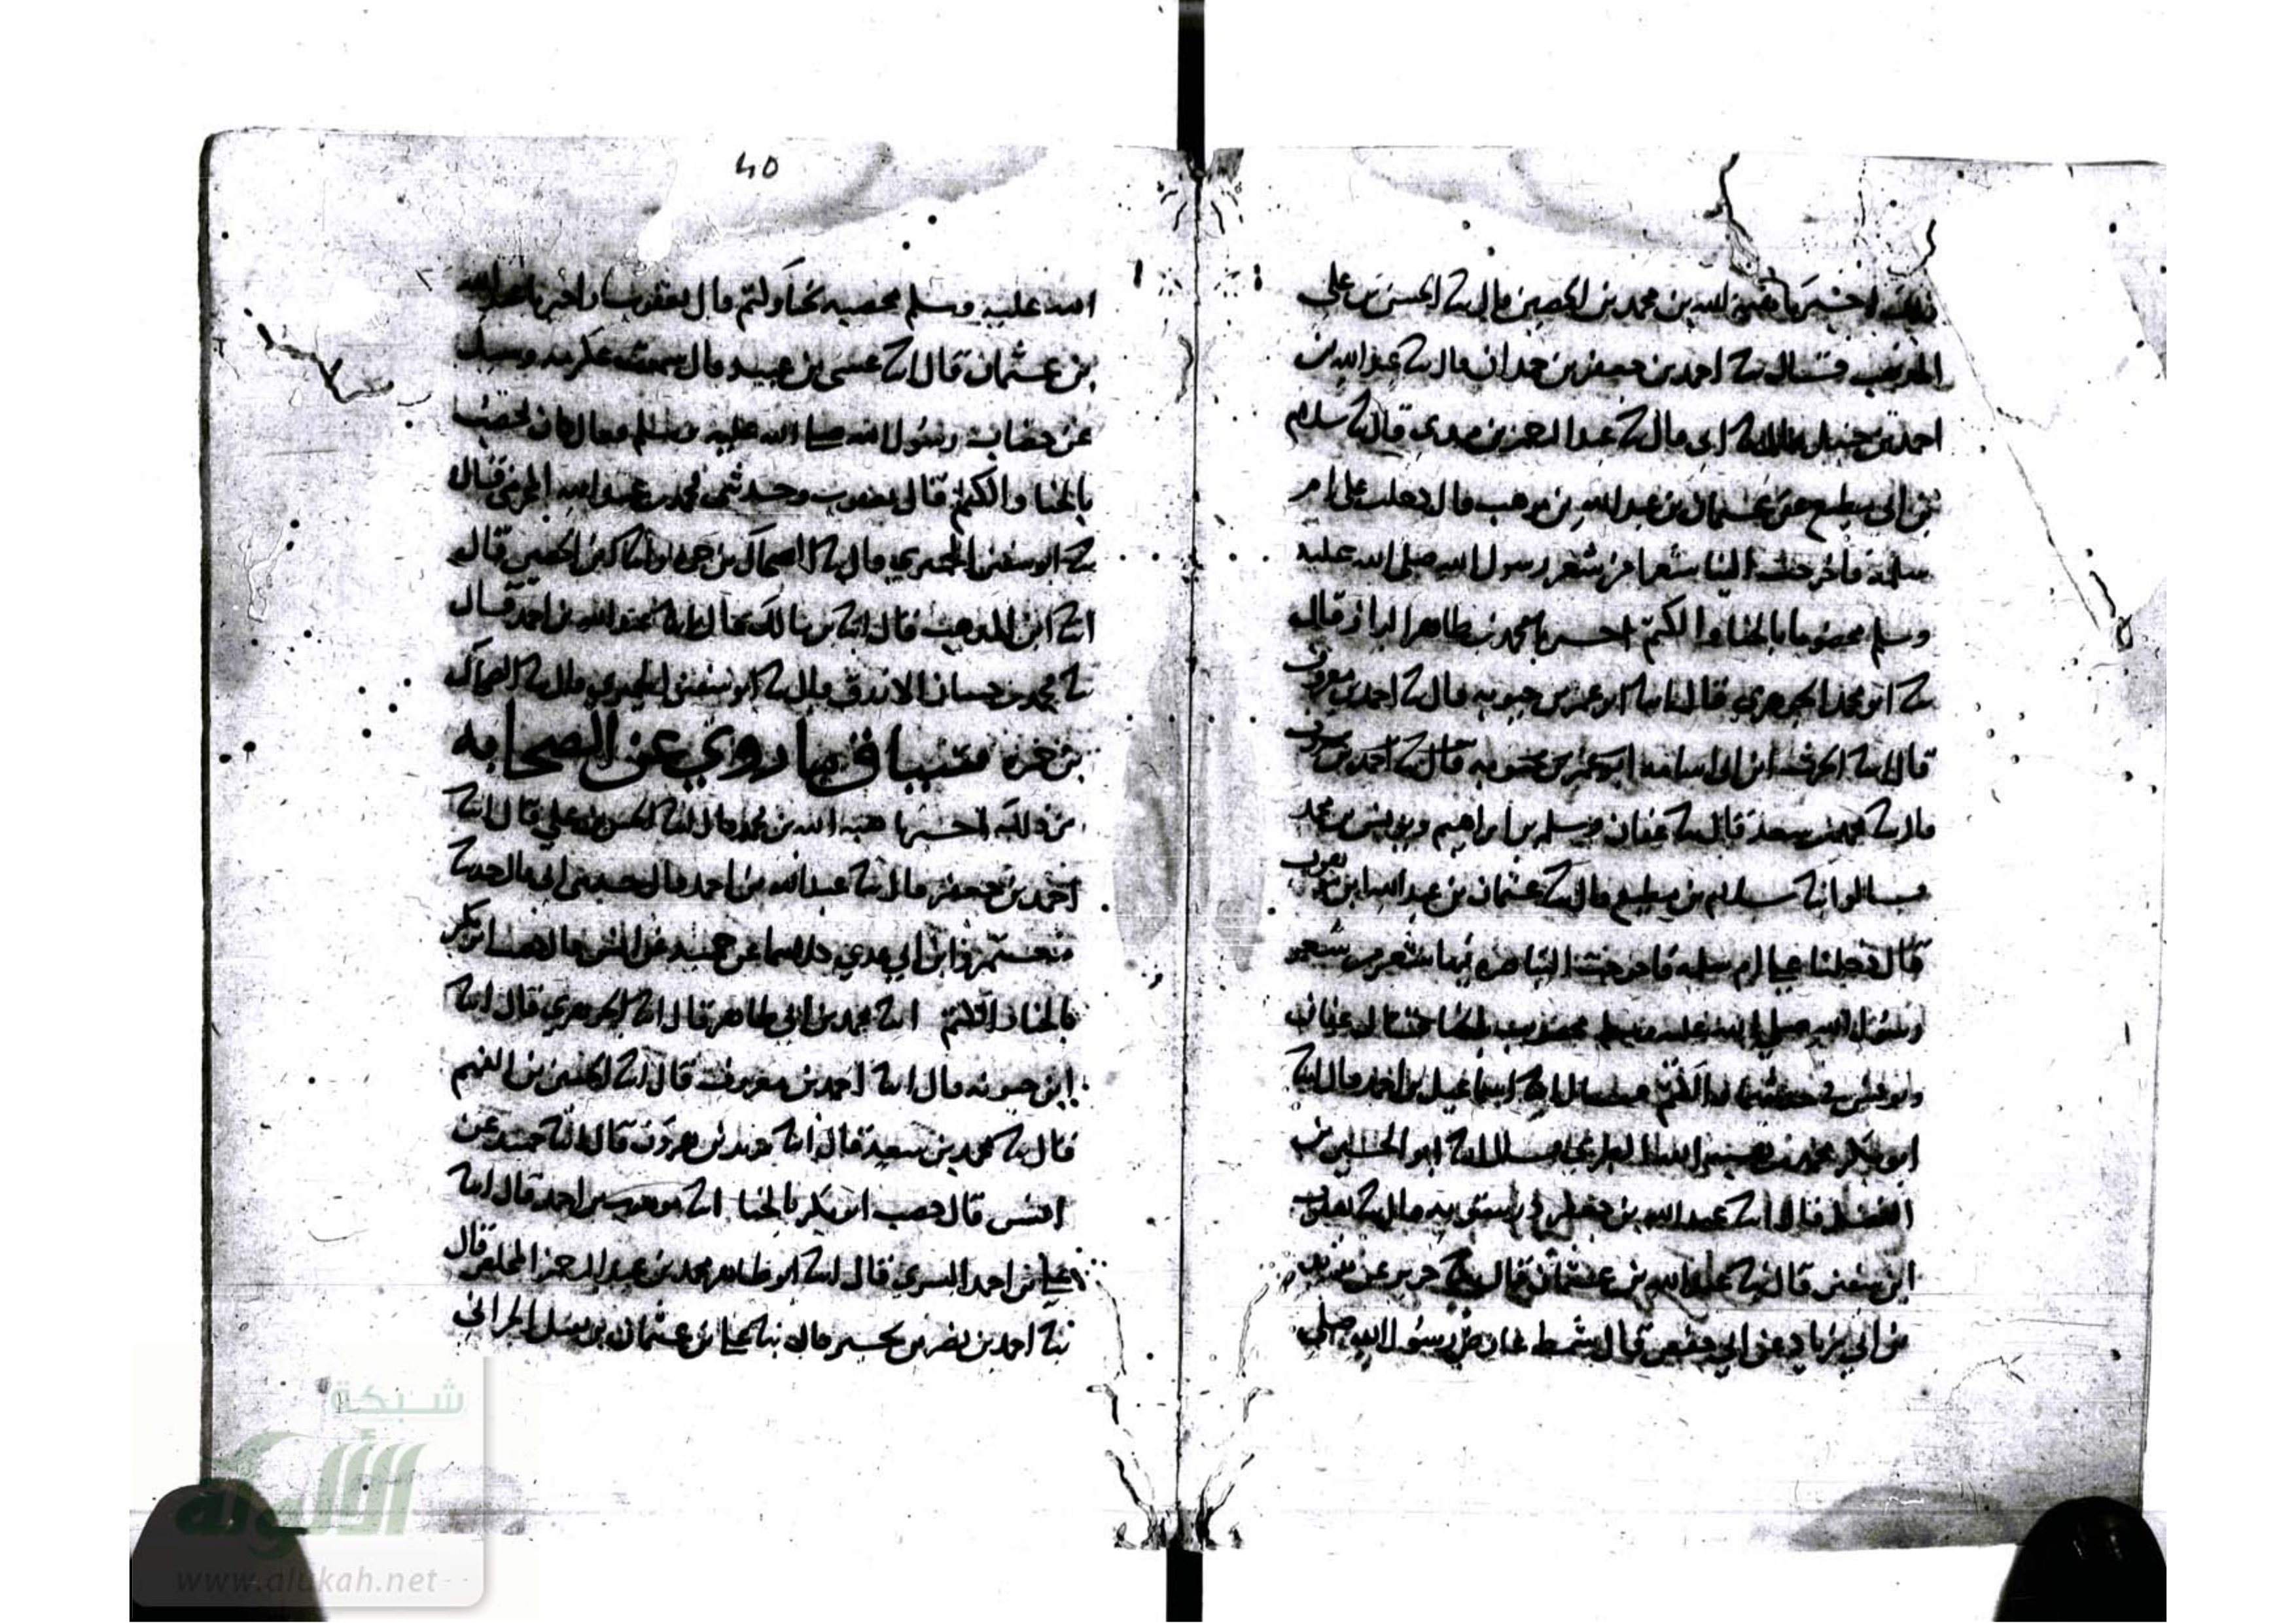 ذلك اخبرنا هبة الله بن محمد بن الحصين قال ثنا الحسن بن علي
المذهب قال ثنا احمد بن جعفر بن حمدان قال ثنا عبد الله بن
احمد بن حنبل قال ثنا ابي قال ثنا عبد الرحمن بن مهدي قال ثنا سلام
بن ابي مطيع عن عثمان بن عبد الله بن موهب قال دخلت على ام
سلمة فاخرجت الينا شعرا من شعر رسول الله صلى الله عليه
وسلم مخضوبا بالحنا والكتم اخبرنا محمد بن طاهر البزاز قال
ثنا ابو محمد الجوهري قال انبا ابو عمر بن حيويه قال ثنا احمد بن معروف
قال ثنا الحرث ابن ابي اسامة ابو عمر بن حيويه قال ثنا احمد بن معروف
قال ثنا محمد بن سعد قال ثنا عفان ومسلم بن ابراهيم ويونس بن محمد
قالوا ثنا سلام بن مطيع قال ثنا عثمان بن عبد الله ابن موهب
قال دخلنا على ام سلمة فاخرجت الينا صرة فيها شعر من شعر
رسول الله صلى الله عليه وسلم مخضوب بالحنا قال عفان
ويونس في حديثهما والكتم انبا اسماعيل بن احمد قال انبا
ابو بكر محمد بن هبة الله الطبري قال انبا ابو الحسين بن
الفضل قال انبا عبد الله بن جعفر بن درستويه قال ثنا يعقوب
ابن سفين قال ثنا عبد الله بن عثمان قال ثنا جرير عن يزيد
بن ابي زياد عن ابي جعفر قال شمط عارض رسول الله صلى
40
الله عليه وسلم فخضبه بحنا وكتم قال يعقوب واخبرنا عبد الله
بن عثمان قال انبا عيسى بن عبيد قال سمعت عكرمة وسيل
عن خضاب رسول الله صلى الله عليه وسلم فقال كان يخضب
بالحنا والكتم قال يعقوب وحدثني محمد بن عبد الله المخرمي قال
ثنا ابو سفين الحميري قال ثنا الضحاك بن حمزة وانبا ابن الحصين قال
انبا ابن المذهب قال انبا بن مالك قال ثنا عبد الله بن احمد قال
ثنا محمد بن حسان الازرق قال ثنا ابو سفين الحميري قال ثنا الضحاك
بن حمزة سياق ما روي عن الصحابه
من ذلك اخبرنا هبة الله بن محمد قال انبا الحسن بن علي قال انبا
احمد بن جعفر قال ثنا عبد الله بن احمد قال حدثني ابي قال حدثنا
معتمر وابن ابي عدي كلاهما عن حميد عن انس قال خضب ابو بكر
بالحنا والكتم انبا محمد بن ابي طاهر قال انبا الجوهري قال انبا
ابن حيويه قال انبا احمد بن معروف قال انبا الحسين بن الفهم
قال ثنا محمد بن سعد قال انبا يزيد بن هرون قال انبا حميد عن
انس قال خضب ابو بكر بالحنا انبا موهوب بن احمد قال انبا
علي بن احمد البسري قال انبا ابو طاهر محمد بن عبد الرحمن المخلص قال
ثنا احمد بن نصر بن بحير قال ثنا علي بن عثمان بن نفيل الحراني
شبكة
الألوكة
www.alukah.net